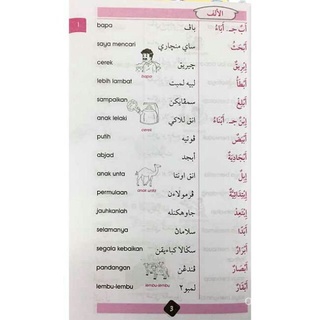 الألف
أ
bapa باڤ أَبٌ جـ. آبَاءٌ
saya mencari ساي منچاري أَبْحَثُ
cerek چيريق إِبْرِيقٌ
bapa
lebih lambat لبيه لمبت أَبْطَأُ
sampaikan سمڤايكن أَبْلِغْ
anak lelaki انق للاكي اِبْنٌ جـ. أَبْنَاءٌ
cerek
putih ڤوتيه أَبْيَضُ
abjad ابجد أَبْجَدِيَّةٌ
anak unta انق اونتا إِبِلٌ
anak unta
permulaan ڤرمولاءن اِبْتِدَائِيَّةٌ
jauhkanlah جاوهكنله اِبْتَعِدْ
selamanya سلامان أَبَدًا
segala kebaikan سݢالا كباءيقن أَبْرَارٌ
pandangan ڤندڠن أَبْصَارٌ
lembu-lembu لمبو٢ أَبْقَارٌ
lembu-lembu
3